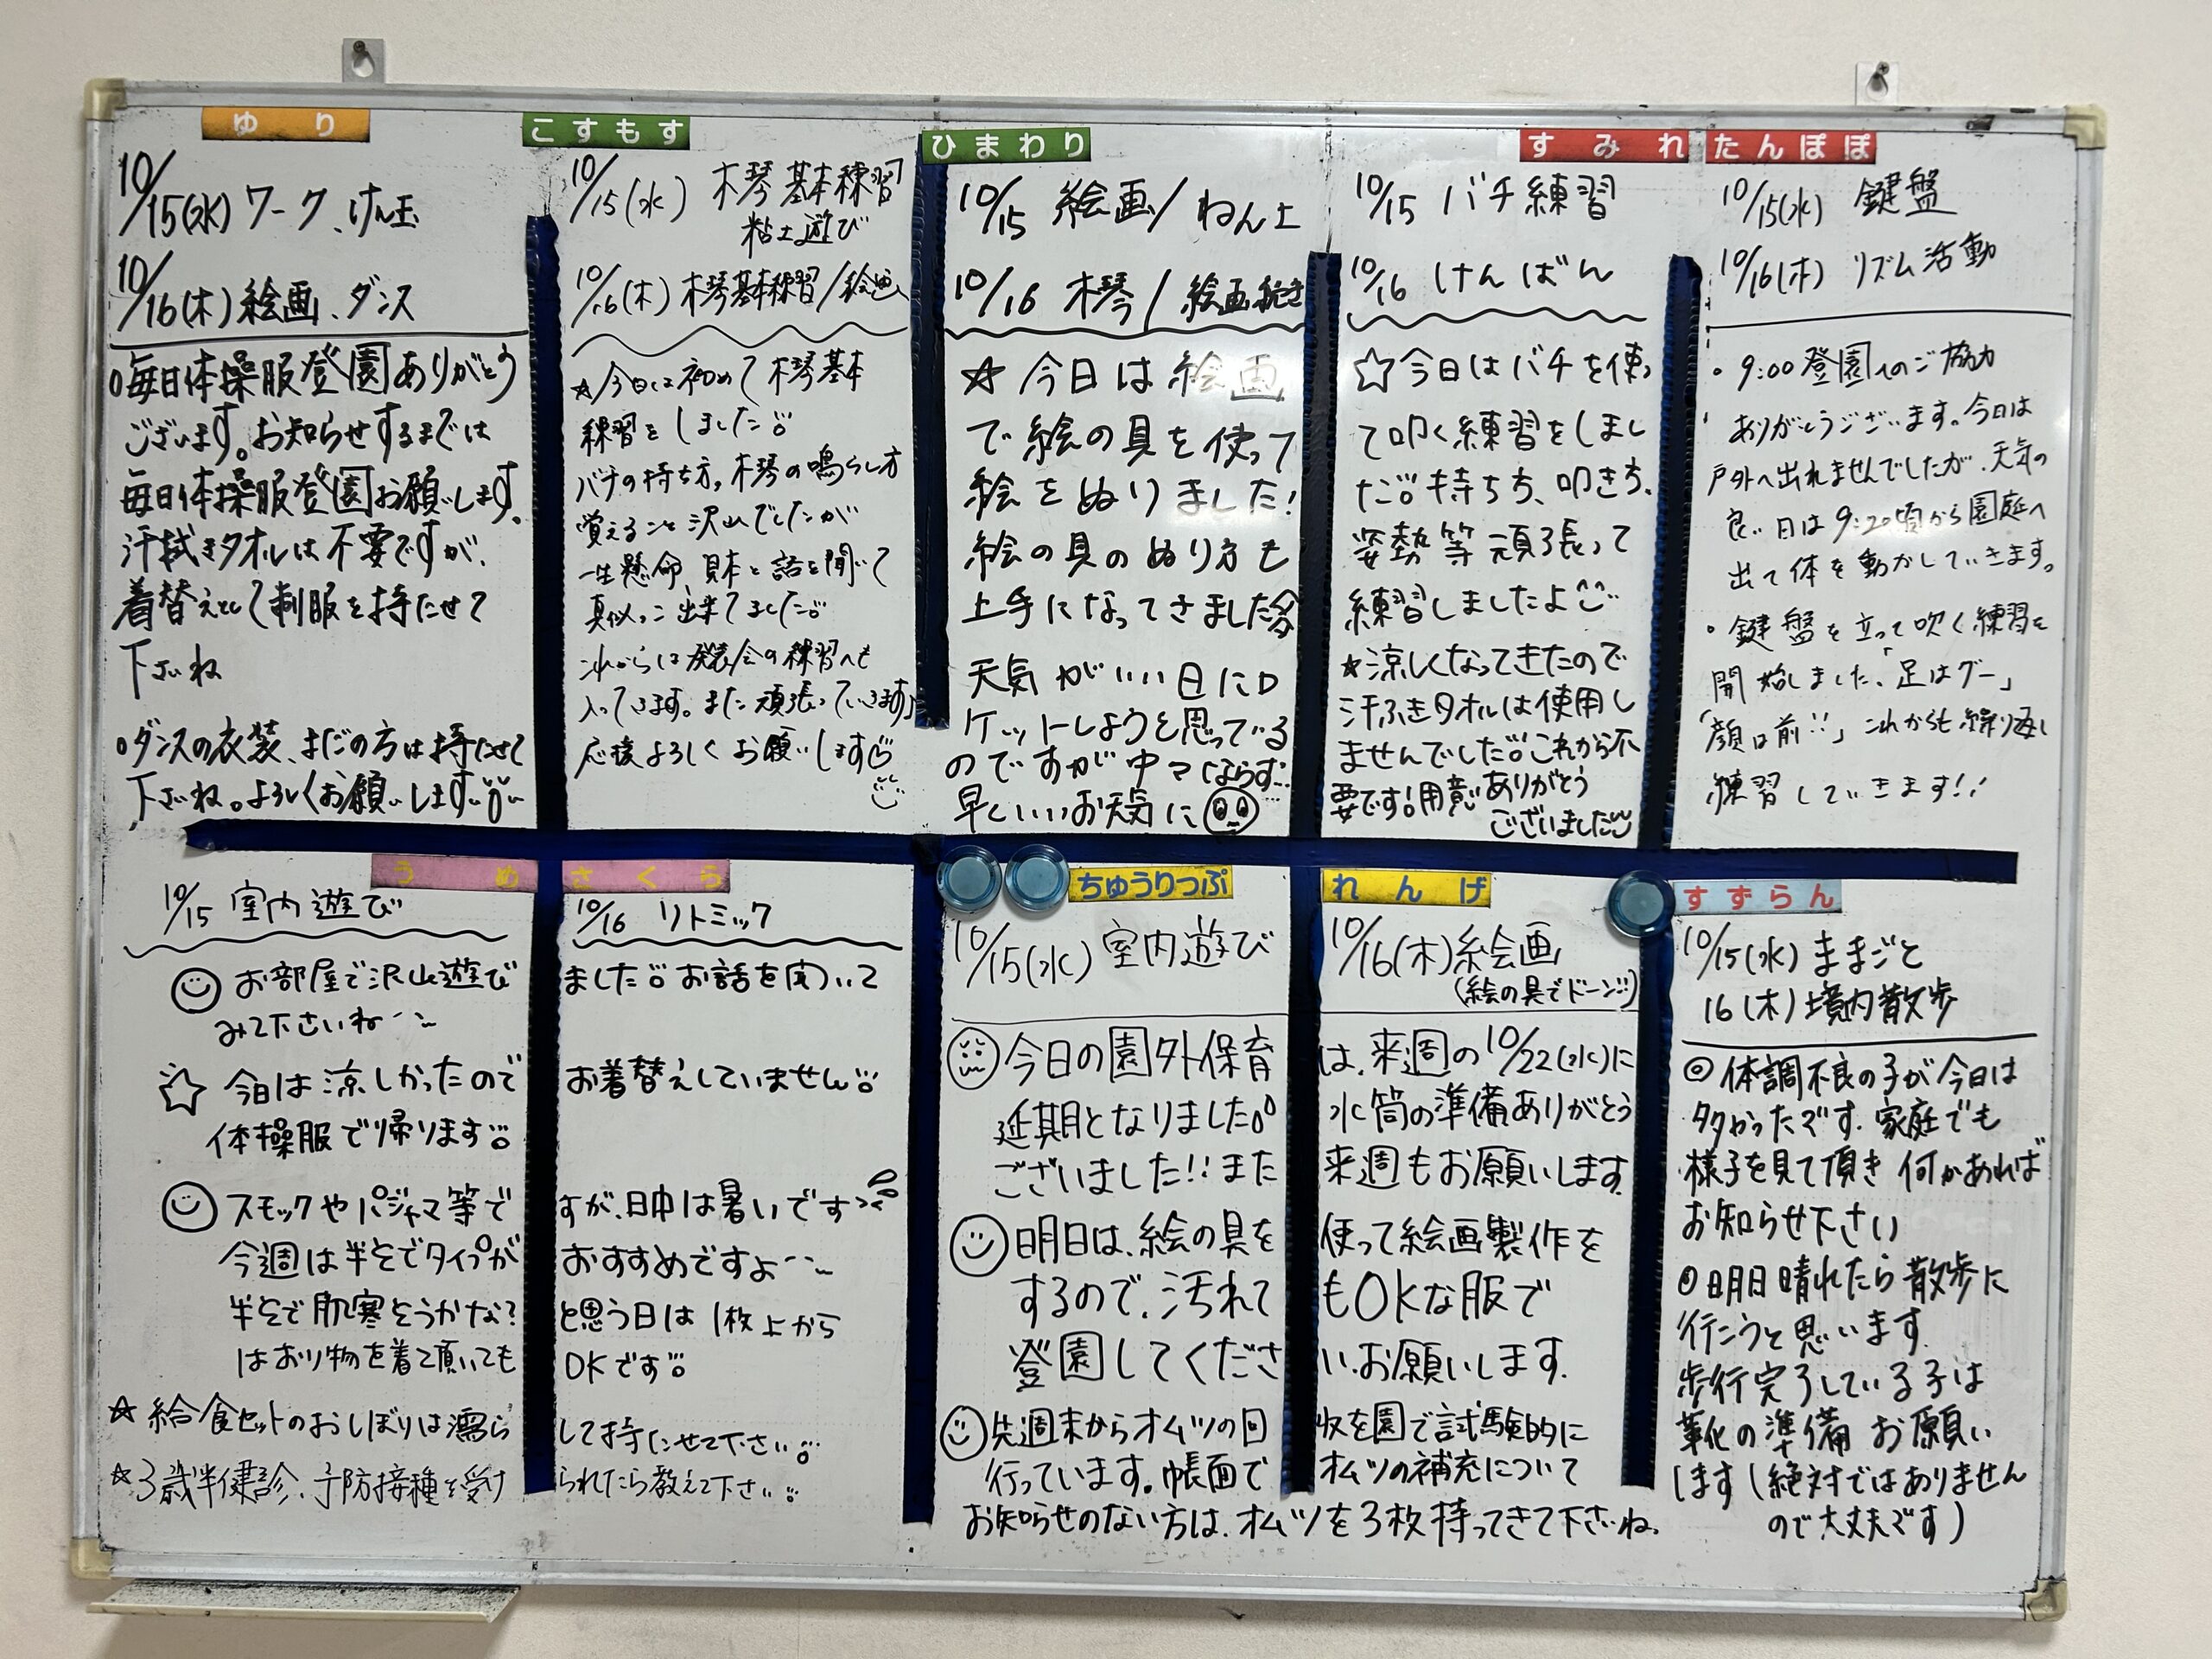 ゆり
10/15(水) ワーク、けん玉
10/16(木) 絵画、ダンス
○毎日体操服登園ありがとう
ございます。お知らせするまでは
毎日体操服登園お願いします。
汗拭きタオルは不要ですが、
着替えとして制服を持たせて
下さいね
○ダンスの衣装、まだの方は持たせて
下さいね。よろしくお願いします
こすもす
10/15(水) 木琴基本練習
粘土遊び
10/16(木) 木琴基本練習/絵画
☆今日は初めて木琴基本
練習をしました。
バチの持ち方、木琴の鳴らし方
覚えること沢山でしたが
一生懸命、見本と話を聞いて
真似っこ出来てました。
これからは発表会の練習へも
入っていきます。また頑張っていきます
応援よろしくお願いします
ひまわり
10/15 絵画/ねん土
10/16 木琴/絵画続き
☆今日は絵画
で絵の具を使って
絵をぬりました!
絵の具のぬり方も
上手になってきました
天気がいい日にロ
ケットしようと思っている
のですが中々ならず…
早くいいお天気に
すみれ
10/15 バチ練習
10/16 けんばん
☆今日はバチを使っ
て叩く練習をしまし
た。持ち方、叩き方、
姿勢等頑張って
練習しましたよ
★涼しくなってきたので
汗ふきタオルは使用し
ませんでした。これから不
要です!用意ありがとう
ございました
たんぽぽ
10/15(水) 鍵盤
10/16(木) リズム活動
・9:00登園へのご協力
ありがとうございます。今日は
戸外へ出れませんでしたが、天気の
良い日は9:20頃から園庭へ
出て体を動かしていきます。
・鍵盤を立って吹く練習を
開始しました。「足はグー」
「顔は前!!」これからも繰り返し
練習していきます!!
うめ さくら
10/15 室内遊び 10/16 リトミック
お部屋で沢山遊びました。お話を聞いて
みて下さいね
☆今日は涼しかったのでお着替えしていません
体操服で帰ります
スモックやパジャマ等ですが、日中は暑いです
今週は半そでタイプがおすすめですよ
半そで肌寒そうかな?と思う日は1枚上から
はおり物を着て頂いてもOKです
☆給食セットのおしぼりは濡らして持たせて下さい
☆3歳半健診、予防接種を受けられたら教えて下さい
ちゅうりっぷ れんげ
10/15(水) 室内遊び 10/16(木) 絵画
(絵の具でドーン!!)
今日の園外保育は、来週の10/22(水)に
延期となりました。水筒の準備ありがとう
ございました!!また来週もお願いします。
明日は、絵の具を使って絵画製作を
するので、汚れてもOKな服で
登園してください。お願いします。
先週末からオムツの回収を園で試験的に
行っています。帳面でオムツの補充について
お知らせのない方は、オムツを3枚持ってきて下さいね。
すずらん
10/15(水) ままごと
16(木) 境内散歩
◎体調不良の子が今日は
多かったです。家庭でも
様子を見て頂き何かあれば
お知らせ下さい
◎明日晴れたら散歩に
行こうと思います。
歩行完了している子は
靴の準備お願い
します(絶対ではありません
ので大丈夫です)